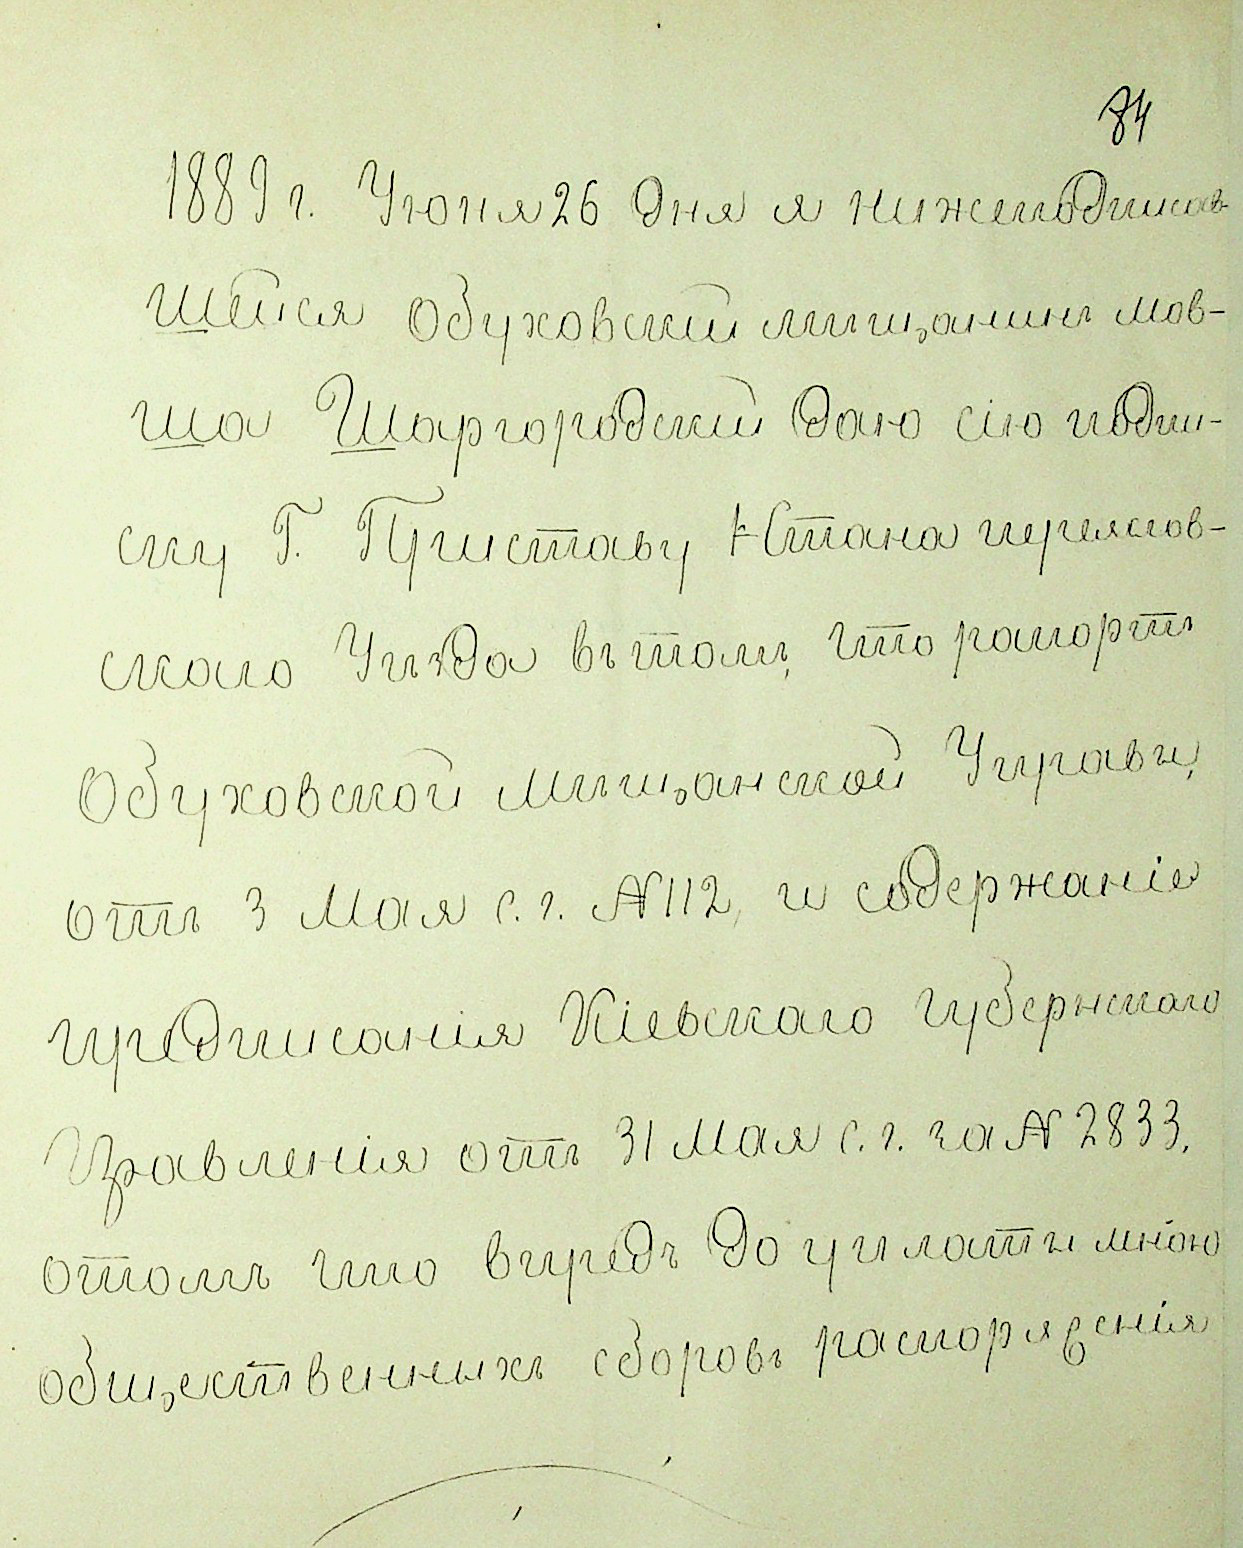 84
1889 г. Июня 26 дня я нижеподписав-
шейся Обуховский мищанинъ Мов-
ша Шаргородский даю сію подпи-
ску Г. Приставу Стана переяслов-
скаго Уизда въ томъ, что рапортъ
Обуховской мищанской Управы,
отъ 3 Мая с. г. № 112, и содержаніе
предписанія Кіевскаго Губернскаго
Правленія отъ 31 Мая с. г. за № 2833,
отомъ что впредь до уплаты мною
общественныхъ сборовъ распоряженія